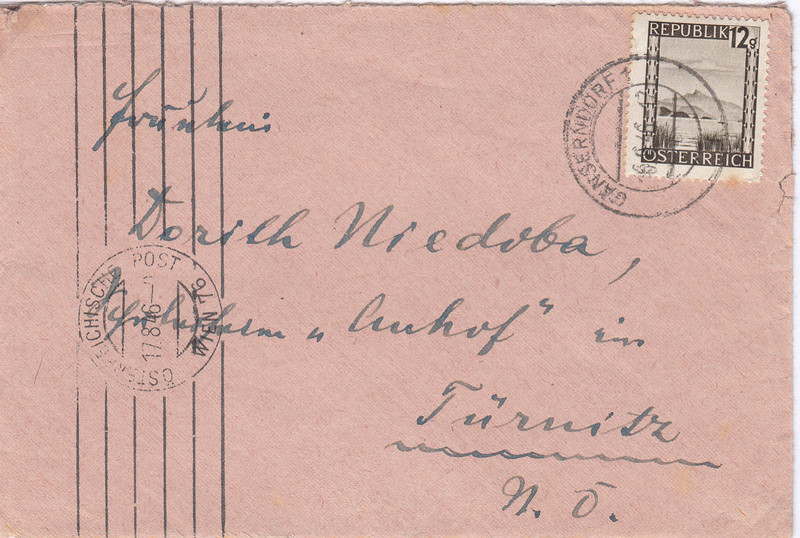 REPUBLIK 12g
ÖSTERREICH
GÄNSERNDORF 1
Fräulein
Dorith Niedoba,
"Anhof" in
Türnitz
N. Ö.
ÖSTERREICHISCHE POST
17.8.46
WIEN 76